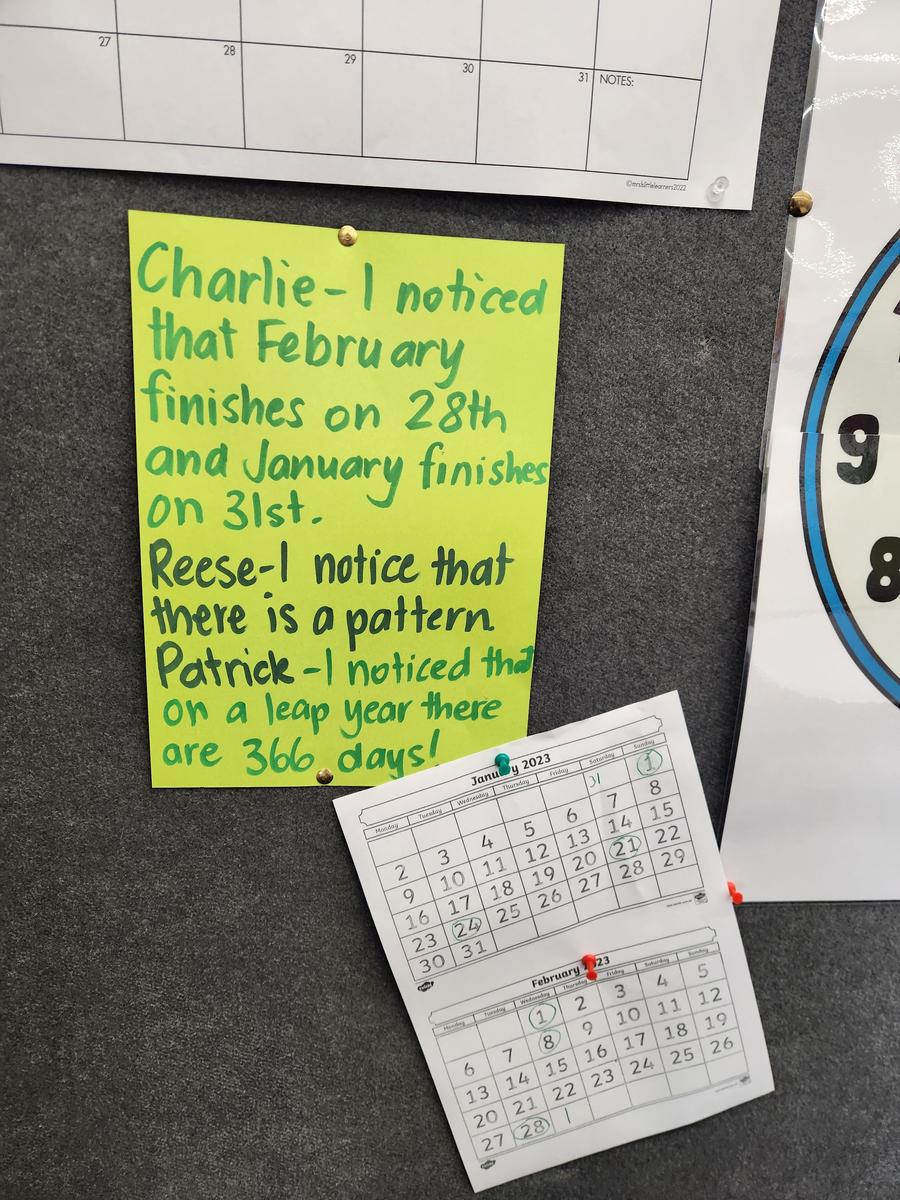 27 28 29 30 31 NOTES:
©mrslittlelearners2022
Charlie - I noticed
that February
finishes on 28th
and January finishes
on 31st.
Reese - I notice that
there is a pattern
Patrick - I noticed that
on a leap year there
are 366 days!
9
8
January 2023
Monday Tuesday Wednesday Thursday Friday Saturday Sunday
31 1
2 3 4 5 6 7 8
9 10 11 12 13 14 15
16 17 18 19 20 21 22
23 24 25 26 27 28 29
30 31
February 2023
Monday Tuesday Wednesday Thursday Friday Saturday Sunday
1 2 3 4 5
6 7 8 9 10 11 12
13 14 15 16 17 18 19
20 21 22 23 24 25 26
27 28 1